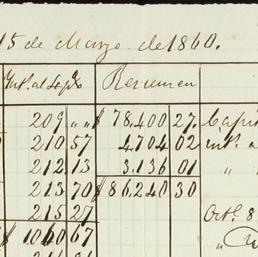 15 de Marzo de 1860.
Int. al 4 p% Resumen
209 „ „ $ 78.400 27. Capit
210 57 4704 02 int. a
212 13 3.136 01 „
213 70 $ 86.240 30
215 27 Oct. 8
$ 1060 67 „